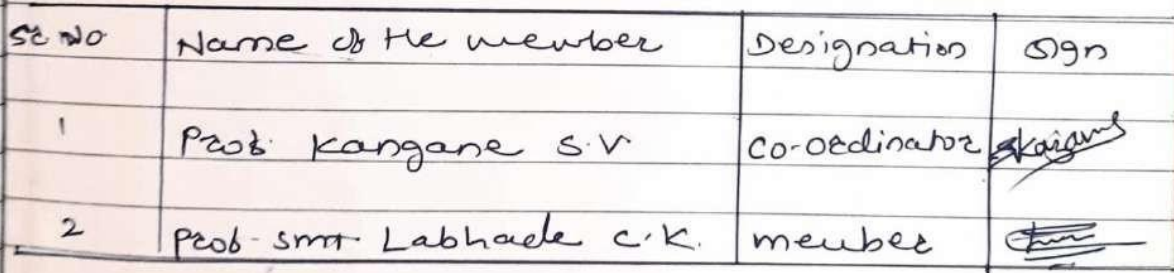 Sr No Name of the member Designation Sign
1 Prof. Kangane S.V Co-ordinator
2 Prof. Smt Labhade C.K. member